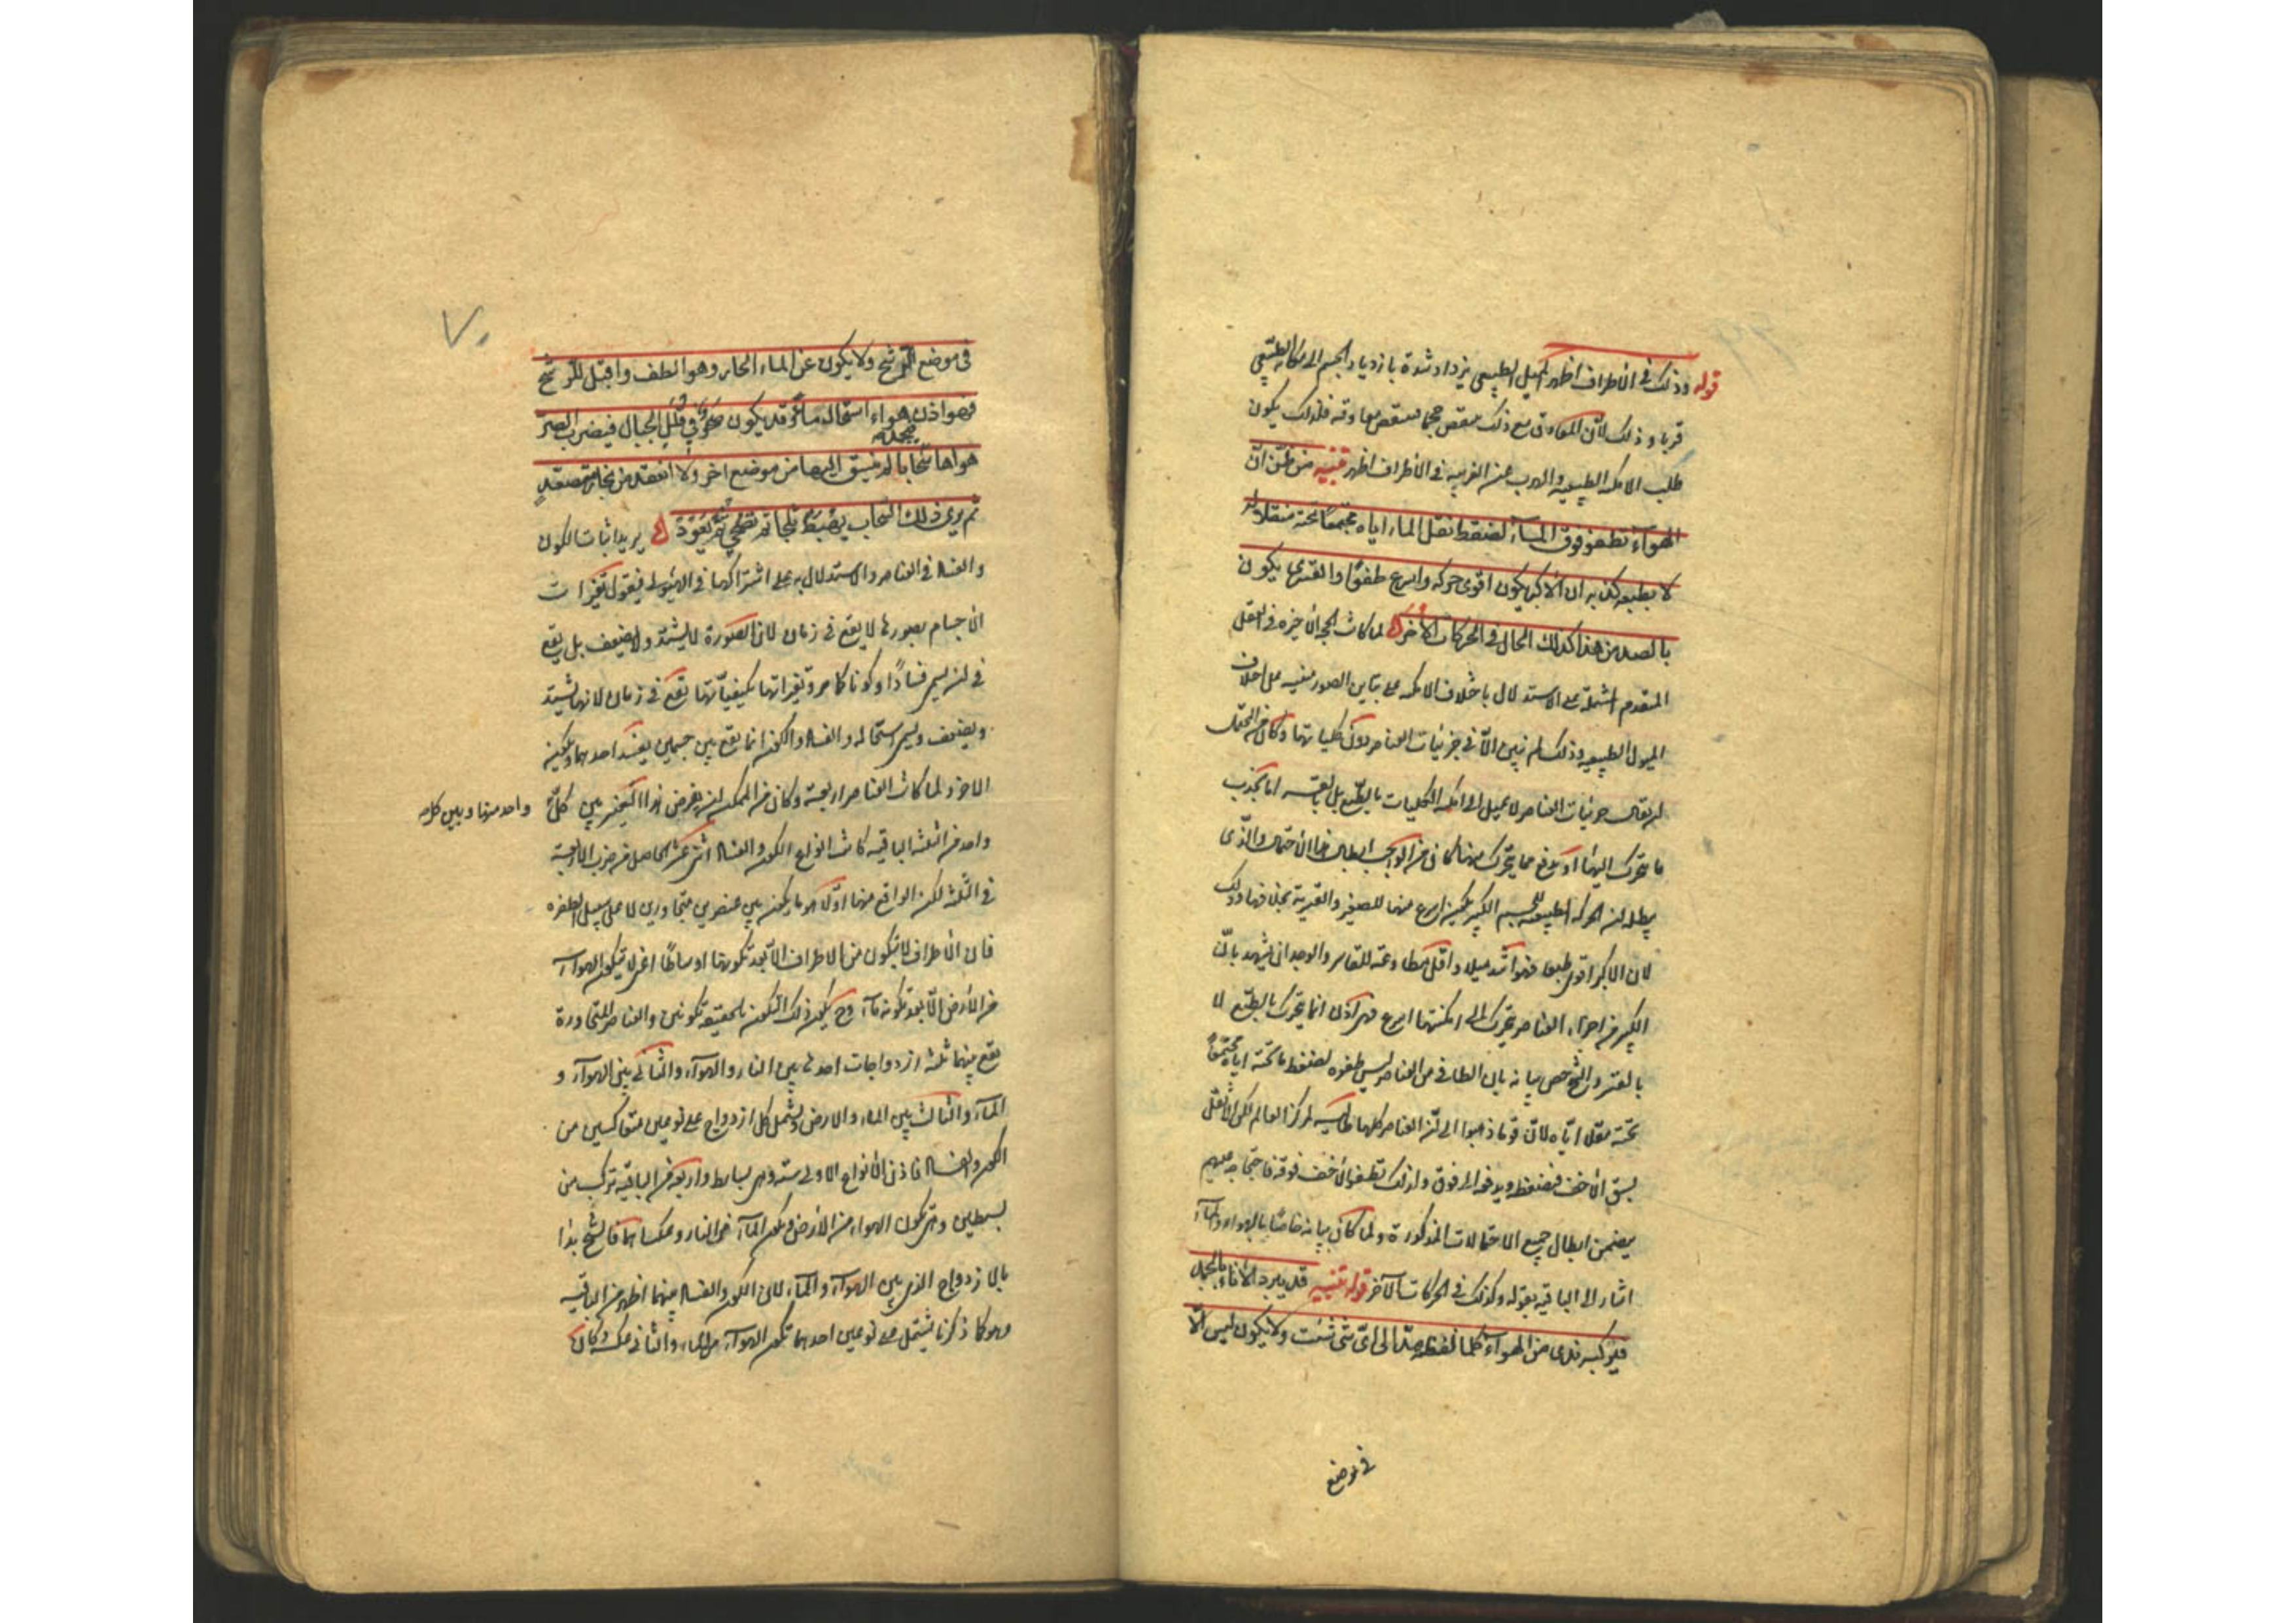 قوله وذلك في الاطراف اظهر الميل الطبيعي يزداد شدة بازدياد الجسم الى مكانه الطبيعي
قربا و ذلك لان المعاوق مع ذلك ينقص حجما فينقص معاوقة فلذلك يكون
طلب الامكنة الطبيعية والهرب عن الغريبة في الاطراف اظهر تنبيه من ظن ان
الهواء تطفو فوق الماء لضغط ثقل الماء اياه مجتمعا تحته مقلا له
لا بطبعه كذبه ان الاكبر يكون اقوى حركة واسرع طفوا والقسري يكون
بالضد من هذا كذلك الحال في الحركات الاخر لما كانت الحجة الاخيرة في الفصل
المتقدم المشتملة على الاستدلال باختلاف الامكنة على تباين الصور مبنية على اختلاف
الميول الطبيعية وذلك لم يتبين الا في جزئيات العناصر دون كلياتها وكان من المحتمل
ان يقال جزئيات العناصر لا تميل الى امكنة الكليات بالطبع بل بالقسر اما بجذب
ما تتحرك اليها او بدفع مما يتحرك عنها كان من الواجب ابطال هذا الاحتمال والذي
يبطله ان الحركة الطبيعية للجسم الكبير يكون اسرع منها للصغير والقسرية بخلافها وذلك
لان الاكبر اقوى طبعا فهو اشد ميلا واقل مطاوعة للقاسر والوجدان يشهد بان
الكبير من اجزاء العناصر يتحرك الى امكنتها اسرع فهي اذن انما يتحرك بالطبع لا
بالقسر والشيخ خص بيانه بان الطافي من العناصر ليس طفوه لضغط ما تحته اياه مجتمعا
تحته مقلا اياه لان قوما ذهبوا الى ان العناصر كلها طالبة لمركز العالم لكن الاثقل
يسبق الاخف فيضغطه ويدفعه الى فوق ولذلك تطفو الاخف فوقه فاحتجاجه عليهم
يتضمن ابطال جميع الاحتمالات المذكورة ولما كان بيانه خاصا بالهواء والماء
اشار الى الباقية بقوله وكذلك في الحركات الاخر قوله تنبيه قد يبرد الاناء بالجمد
فيركبه ندى من الهواء كلما لقطته مد الى اى شئ شئت ولا يكون ليس الا
في موضع
في موضع الترشح ولا يكون عن الماء الحار وهو الطف واقبل للترشح
فهو اذن هواء استحال ماء وقد يكون صحو في قلل الجبال فيضرب الصر
هواها فيجمد سحابا لم ينسق اليها من موضع اخر ولا انعقد من بخار متصعد
ثم يرى ذلك السحاب يهبط ثلجا ثم تصحى ثم يعود يريد اثبات الكون
والفساد في العناصر والاستدلال به على اشتراكها في الهيولى فيقول تغيرات
الاجسام بصورها لا يقع في زمان لان الصورة لا يشتد ولا يضعف بل يقع
في ان يسمى فسادا وكونا كما مر وتغيراتها بكيفياتها يقع في زمان لانها تشتد
ويضعف ويسمى استحالة والفساد والكون انما يقع بين جسمين يفسد احدهما ويكون
الاخر ولما كانت العناصر اربعة وكان من الممكن ان يفرض هذا التغير بين كل
واحد منها وبين كل
واحد من الثلثة الباقية كانت انواع الكون والفساد اثنى عشر الحاصل من ضرب الاربعة
في الثلثة لكن الواقع منها اولا هو ما يكون بين عنصرين متجاورين لا على سبيل الطفرة
فان الاطراف لا يتكون من الاطراف الا بعد تكونها اوساطا اعنى لا يتكون الهواء
من الارض الا بعد تكونه ماء وح يكون ذلك التكون بالحقيقة تكونين والعناصر المتجاورة
يقع بينها ثلثة ازدواجات احدها بين النار والهواء والثاني بين الهواء و
الماء والثالث بين الماء والارض ويشمل كل ازدواج على نوعين متعاكسين من
الكون والفساد فاذن الانواع الاولى ستة وهي بسايط واربعة من الباقية تركب من
بسيطين وهي تكون الهواء من الارض وتكون الماء من النار وعكساهما فالشيخ بدا
بالازدواج الذي بين الهواء والماء لان الكون والفساد بينهما اظهر من الباقية
وهو كما ذكرنا يشتمل على نوعين احدهما تكون الهواء من الماء والثاني عكسه وكان